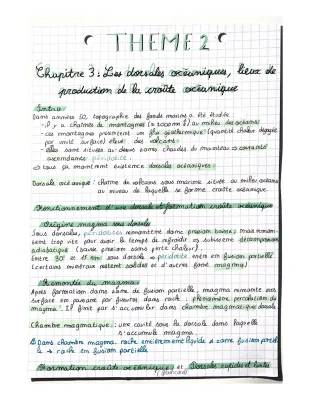 THEME 2
Chapitre 3: Les dorsales océaniques, lieux de
production de la croûte océanique
Intro:
Dans années 50, topographie des fonds marins a été étudiée
- il y a chaînes de montagnes au milieu des océans
- ces montagnes présentent un flux géothermique (quantité chaleur dégagée
par unité surface) élevé des volcans
- elles sont situées au-dessus zones chaudes du manteau
ascendante péridotite
existence dorsales océaniques
Dorsale océanique: chaîne de volcans sous marine située au milieu océans
au niveau de laquelle se forme croûte océanique
Fonctionnement d'une dorsale et formation croûte océanique
Origine magma sous dorsale
Sous dorsales, péridotites remontent dans pression baisse, mais remon-
tent trop vite pour avoir le temps de refroidir subissent décompression
adiabatique (baisse pression sans perte chaleur).
Entre 30 et km sous dorsale péridotite entre en fusion partielle
(certains minéraux restent solides et d'autres fome magma)
Remontée du magma
Après formation dans zone de fusion partielle, magma remonte vers
surface en passant par fissures dans roche: phénomène percolation du
magma. Il finit par s'accumuler dans chambre magmatique dorsale
Chambre magmatique: une cavité sous la dorsale dans laquelle
s'accumule magma.
Dans chambre magma, roche entièrement liquide ≠ zone fusion partiel
le → roche en fusion partielle
Formation croûte océanique et Dorsale rapide et lente